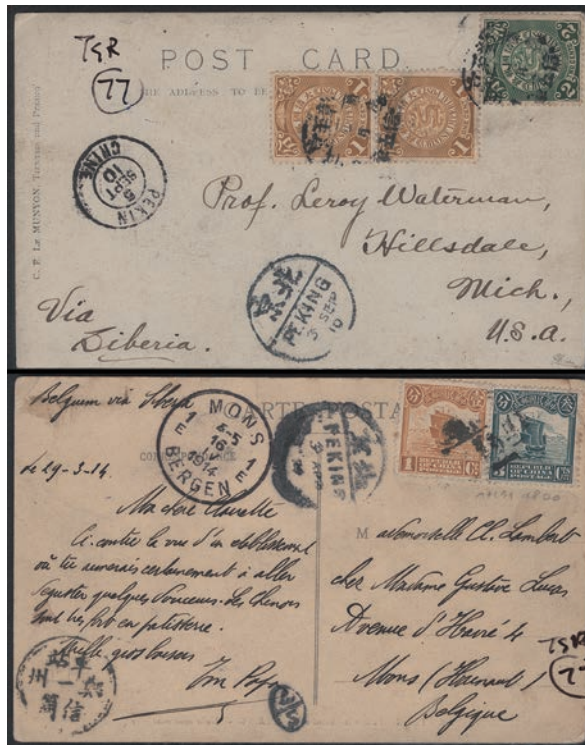 TSR
77
POST CARD.
C. E. LE MUNYON, TIENTSIN and PEKING
PEKIN
5
SEPT
10
CHINE
Prof. Leroy Waterman,
Hillsdale,
Mich.,
U.S.A.
Via
Siberia.
北京
PEKING
3 SEP
10
Belgium via Siberia
MONS
1 E
4-5
16
IV
1914
1 E
BERGEN
CARTE POSTALE
PEKING
3 APR
le 29-3-14.
Ma chère
Ci-contre la vue d'un établissement
où tu aimerais certainement à aller
déguster quelques douceurs. Les Chinois
sont très fort en patisserie.
Mille gros baisers
Ton Papa
Mademoiselle Cl. Lambert
chez Madame Gustave Lucas
Avenue d'Havré 4
Mons (Hainaut)
Belgique
TSR
77